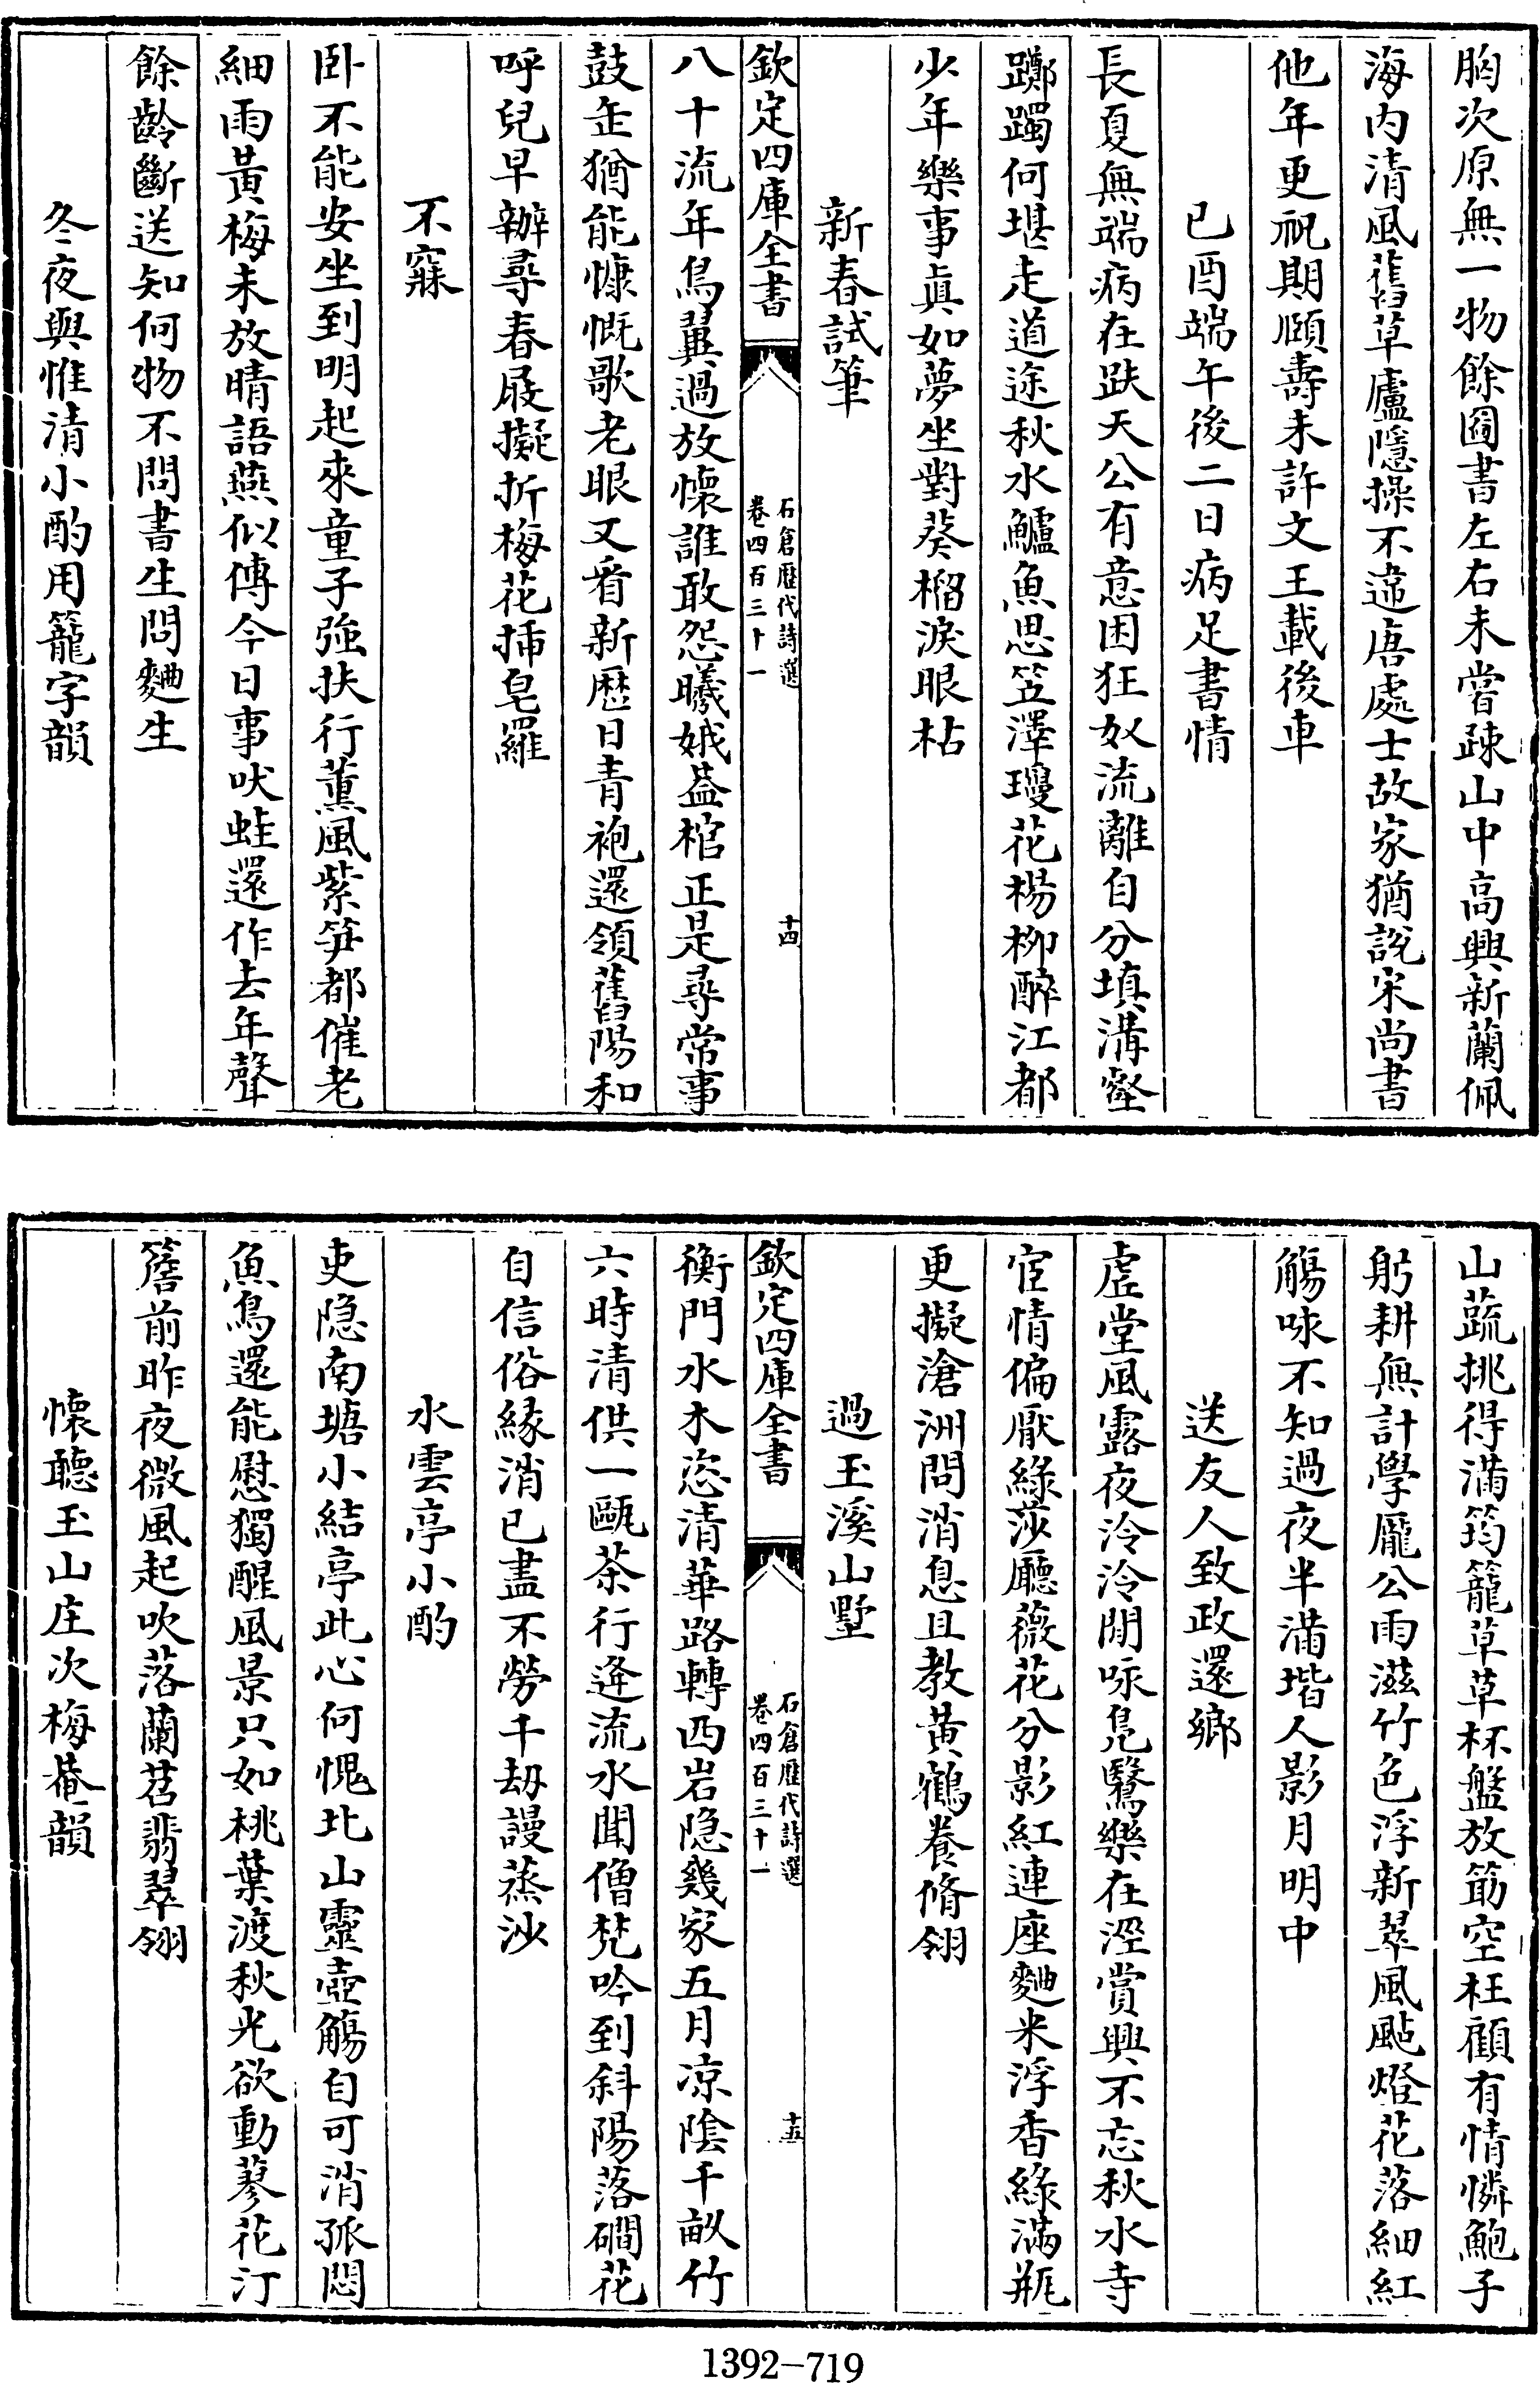 胸次原無一物餘圖書左右未嘗疎山中高興新蘭佩
海内清風舊草廬隱操不違唐處士故家猶說宋尚書
他年更祝期頤壽未許文王載後車
已酉端午後二日病足書情
長夏無端病在趺天公有意困狂奴流離自分填溝壑
躑躅何堪走道途秋水鱸魚思笠澤瓊花楊柳醉江都
少年樂事真如夢坐對葵榴淚眼枯
新春試筆
欽定四庫全書
石倉歷代詩選
卷四百三十一
十四
八十流年鳥翼過放懷誰敢怨曦娥葢棺正是尋常事
鼓缶猶能慷慨歌老眼又看新歴日青袍還領舊陽和
呼兒早辦尋春屐擬折梅花揷皂羅
不寐
卧不能安坐到明起來童子強扶行薰風紫笋都催老
細雨黃梅未放晴語燕似傳今日事吠蛙還作去年聲
餘齡斷送知何物不問書生問麯生
冬夜與惟清小酌用籠字韻
山蔬挑得滿筠籠草草杯盤放筯空枉顧有情憐鮑子
躬耕無計學龐公雨滋竹色浮新翠風颭燈花落細紅
觴咏不知過夜半滿堦人影月明中
送友人致政還鄉
虛堂風露夜泠泠閒咏鳧鷖樂在涇賞興不忘秋水寺
宦情偏厭綠莎廳薇花分影紅連座麯米浮香綠滿瓶
更擬滄洲問消息且教黄鶴養脩翎
過玉溪山墅
欽定四庫全書
石倉歷代詩選
卷四百三十一
十五
衡門水木恣清華路轉西岩隐幾家五月凉陰千畝竹
六時清供一甌茶行逢流水聞僧梵吟到斜陽落礀花
自信俗緣消已盡不勞千刼謾蒸沙
水雲亭小酌
吏隐南塘小結亭此心何愧北山靈壺觴自可消孤悶
魚鳥還能慰獨醒風景只如桃葉渡秋光欲動蓼花汀
簷前昨夜微風起吹落蘭苕翡翠翎
懷聽玉山庄次梅菴韻
1392-719